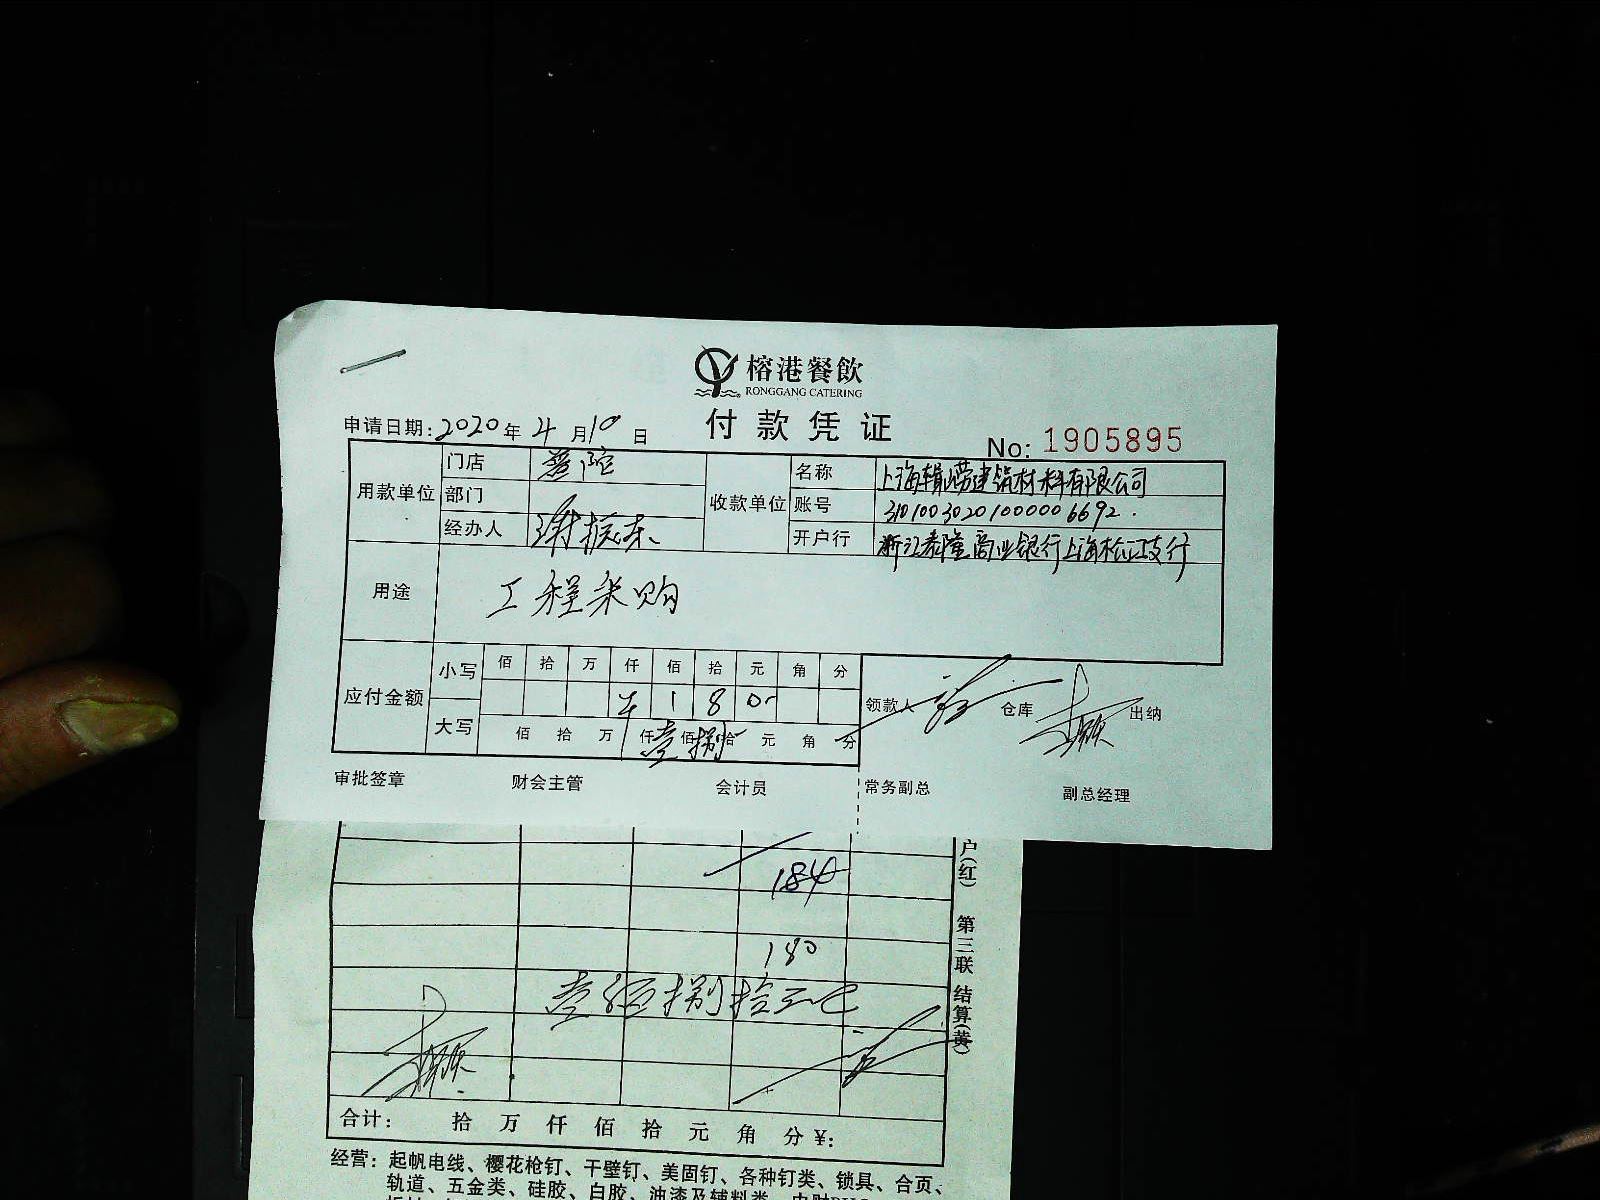 榕港餐飲
RONGGANG CATERING
付款凭证
申请日期:2020年4月10日
No: 1905895
用款单位 门店 普陀 收款单位 名称 上海辑崂建筑材料有限公司
部门 账号 3101003020100000 6692
经办人 谢振东 开户行 浙江泰隆商业银行上海松江支行
用途 工程采购
应付金额 小写 佰 拾 万 仟 佰 拾 元 角 分
¥ 1 8 0
大写 佰 拾 万 仟 壹 佰 捌 拾 元 角 分
领款人 仓库 出纳
审批签章 财会主管 会计员 常务副总 副总经理
184
180
壹佰捌拾元
户(红) 第三联 结算(黄)
合计: 拾 万 仟 佰 拾 元 角 分 ¥:
经营:起帆电线、樱花枪钉、干壁钉、美固钉、各种钉类、锁具、合页、
轨道、五金类、硅胶、白胶、油漆及辅料类